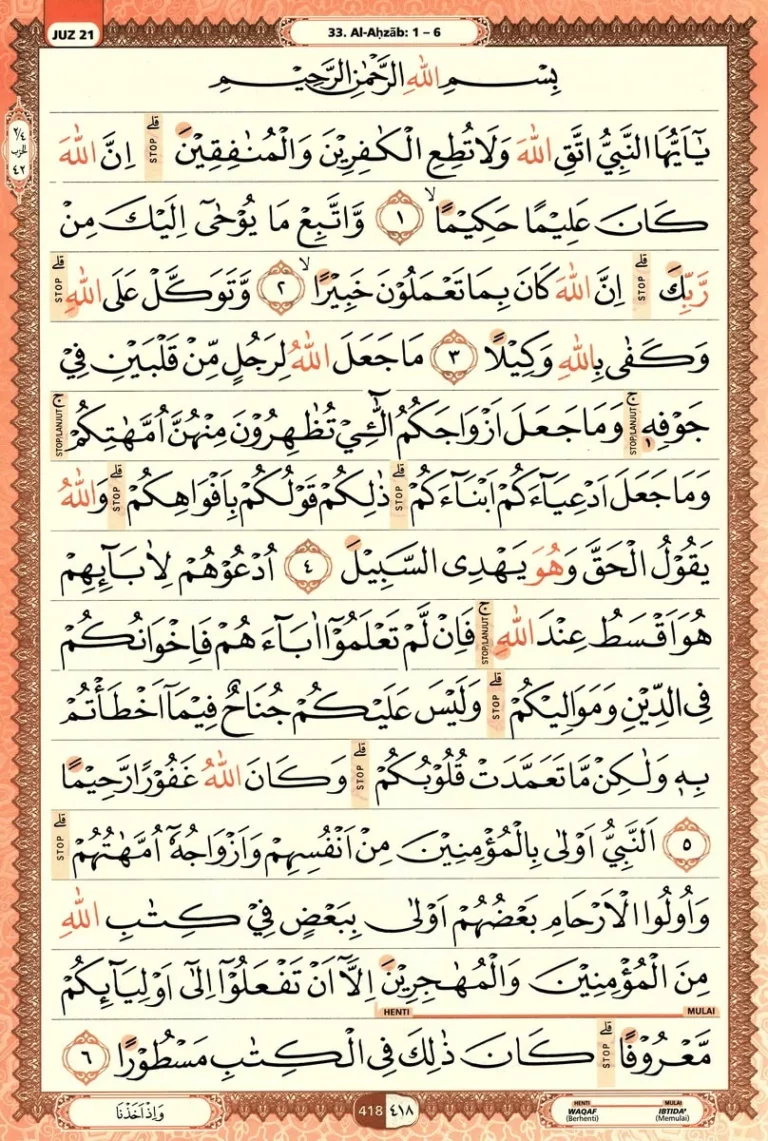 JUZ 21
33. Al-Aḥzāb: 1 – 6
بِسْمِ اللّٰهِ الرَّحْمٰنِ الرَّحِيْمِ
٢/٤ الحزب ٤٢
يٰٓاَيُّهَا النَّبِيُّ اتَّقِ اللّٰهَ وَلَا تُطِعِ الْكٰفِرِيْنَ وَالْمُنٰفِقِيْنَ ۗ STOP اِنَّ اللّٰهَ
كَانَ عَلِيْمًا حَكِيْمًاۙ ١ وَّاتَّبِعْ مَا يُوْحٰىٓ اِلَيْكَ مِنْ
رَّبِّكَ ۗ STOP اِنَّ اللّٰهَ كَانَ بِمَا تَعْمَلُوْنَ خَبِيْرًاۙ ٢ وَّتَوَكَّلْ عَلَى اللّٰهِ ۗ STOP
وَكَفٰى بِاللّٰهِ وَكِيْلًا ٣ مَا جَعَلَ اللّٰهُ لِرَجُلٍ مِّنْ قَلْبَيْنِ فِيْ
جَوْفِهٖ ۚ STOP/LANJUT وَمَا جَعَلَ اَزْوَاجَكُمُ الّٰـِٕۤيْ تُظٰهِرُوْنَ مِنْهُنَّ اُمَّهٰتِكُمْ ۚ STOP/LANJUT
وَمَا جَعَلَ اَدْعِيَاۤءَكُمْ اَبْنَاۤءَكُمْ ۗ STOP ذٰلِكُمْ قَوْلُكُمْ بِاَفْوَاهِكُمْ ۗ STOP وَاللّٰهُ
يَقُوْلُ الْحَقَّ وَهُوَ يَهْدِى السَّبِيْلَ ٤ اُدْعُوْهُمْ لِاٰبَاۤىِٕهِمْ
هُوَ اَقْسَطُ عِنْدَ اللّٰهِ ۚ STOP/LANJUT فَاِنْ لَّمْ تَعْلَمُوْٓا اٰبَاۤءَهُمْ فَاِخْوَانُكُمْ
فِى الدِّيْنِ وَمَوَالِيْكُمْ ۗ STOP وَلَيْسَ عَلَيْكُمْ جُنَاحٌ فِيْمَآ اَخْطَأْتُمْ
بِهٖ وَلٰكِنْ مَّا تَعَمَّدَتْ قُلُوْبُكُمْ ۗ STOP وَكَانَ اللّٰهُ غَفُوْرًا رَّحِيْمًا
٥ اَلنَّبِيُّ اَوْلٰى بِالْمُؤْمِنِيْنَ مِنْ اَنْفُسِهِمْ وَاَزْوَاجُهٗٓ اُمَّهٰتُهُمْ ۗ STOP
وَاُولُوا الْاَرْحَامِ بَعْضُهُمْ اَوْلٰى بِبَعْضٍ فِيْ كِتٰبِ اللّٰهِ
مِنَ الْمُؤْمِنِيْنَ وَالْمُهٰجِرِيْنَ اِلَّآ اَنْ تَفْعَلُوْٓا اِلٰٓى اَوْلِيَاۤىِٕكُمْ
HENTI MULAI
مَّعْرُوْفًا ۗ STOP كَانَ ذٰلِكَ فِى الْكِتٰبِ مَسْطُوْرًا ٦
وَاِذْ اَخَذْنَا
418 ٤١٨
HENTI WAQAF (Berhenti)
MULAI IBTIDA' (Memulai)